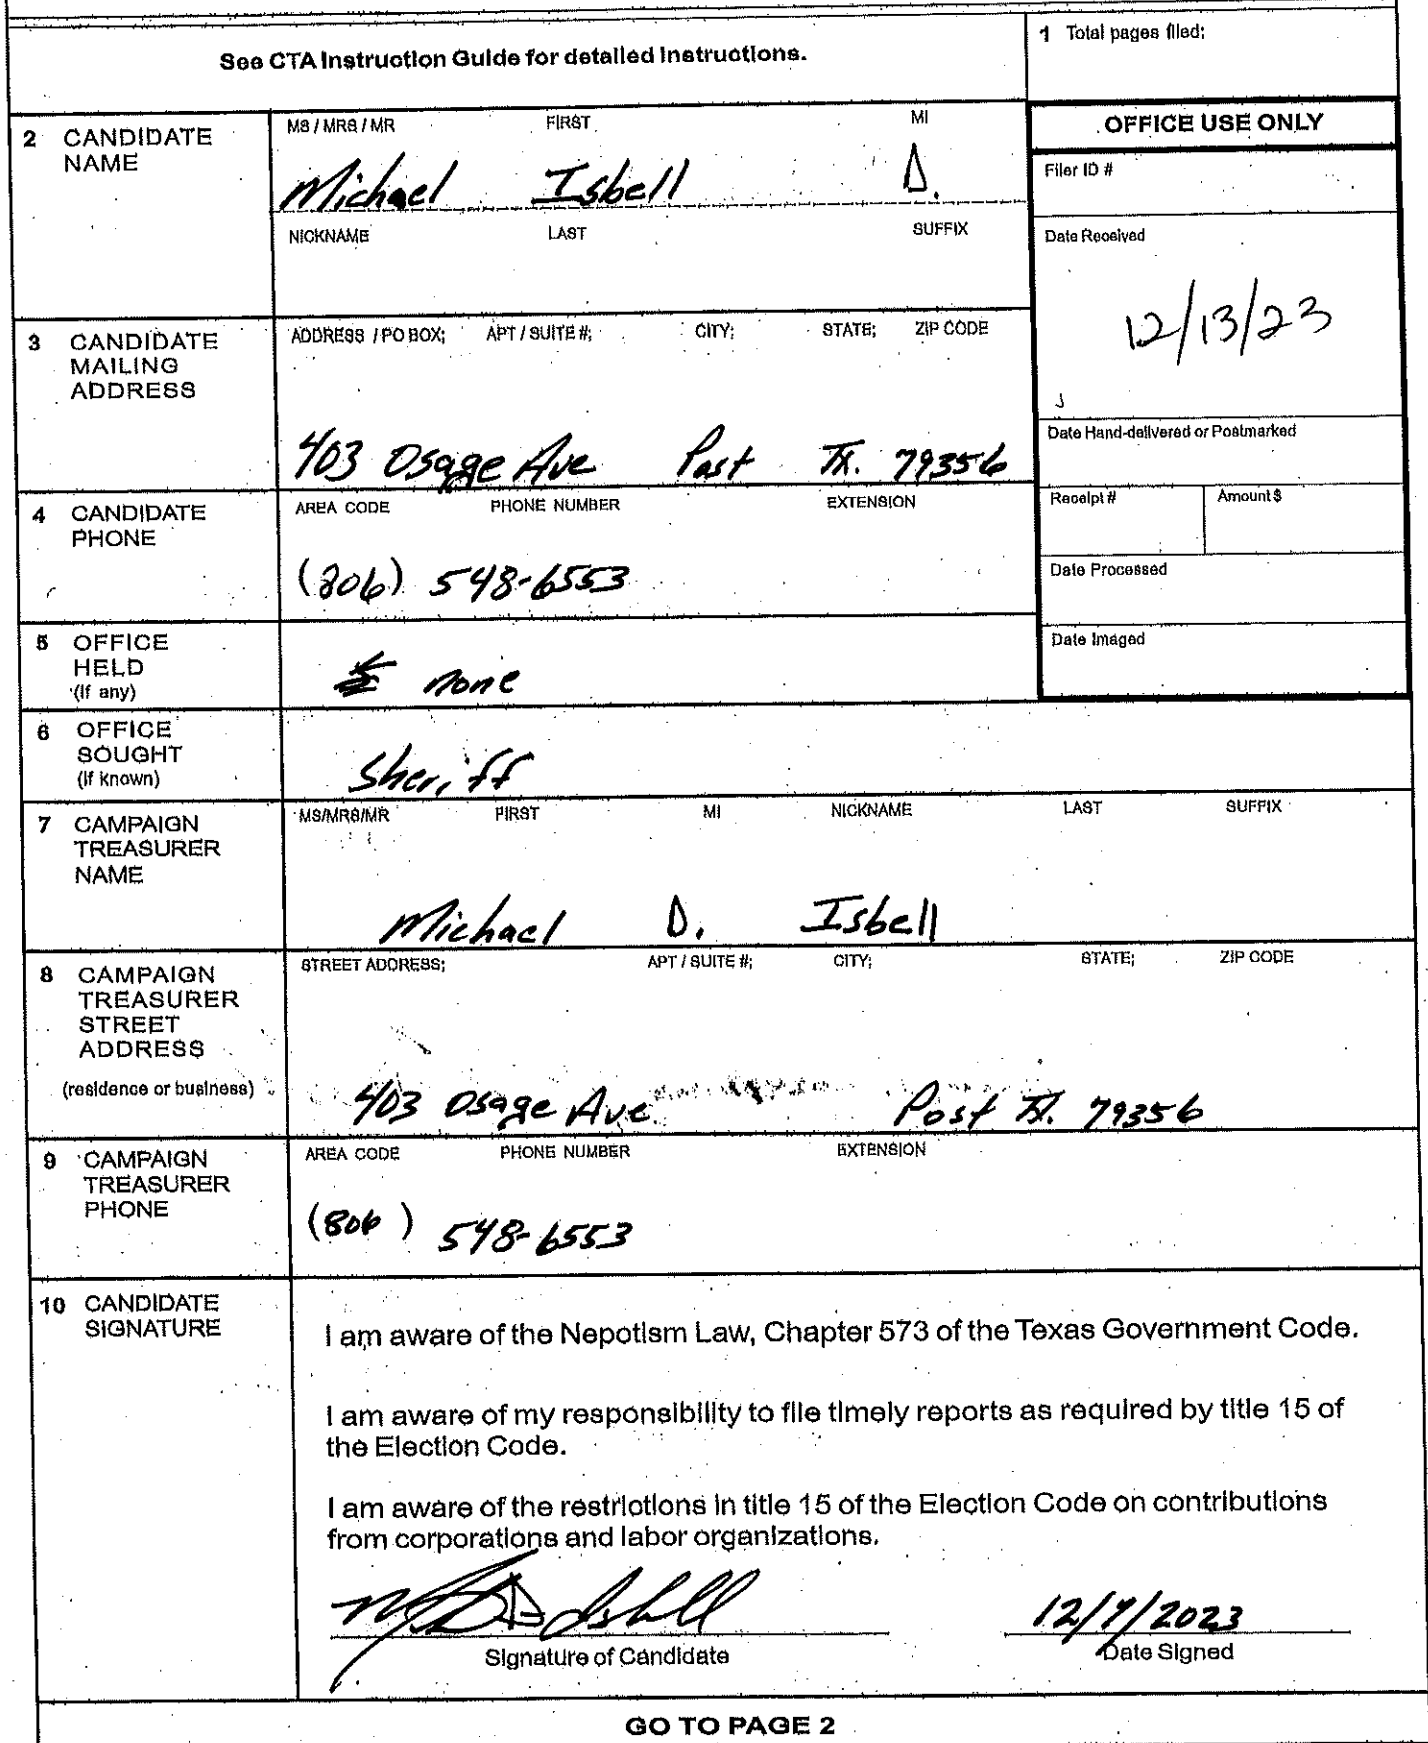 See CTA Instruction Guide for detailed Instructions.
1 Total pages filed:
2 CANDIDATE NAME
MS / MRS / MR FIRST MI
Michael Isbell D.
NICKNAME LAST SUFFIX
OFFICE USE ONLY
Filer ID #
Date Received
12/13/23
3 CANDIDATE MAILING ADDRESS
ADDRESS / PO BOX; APT / SUITE #; CITY; STATE; ZIP CODE
403 Osage Ave Post TX. 79356
Date Hand-delivered or Postmarked
4 CANDIDATE PHONE
AREA CODE PHONE NUMBER EXTENSION
(806) 548-6553
Receipt # Amount $
Date Processed
Date Imaged
5 OFFICE HELD (if any)
none
6 OFFICE SOUGHT (if known)
Sheriff
7 CAMPAIGN TREASURER NAME
MS/MRS/MR FIRST MI NICKNAME LAST SUFFIX
Michael D. Isbell
8 CAMPAIGN TREASURER STREET ADDRESS
(residence or business)
STREET ADDRESS; APT / SUITE #; CITY; STATE; ZIP CODE
403 Osage Ave Post TX. 79356
9 CAMPAIGN TREASURER PHONE
AREA CODE PHONE NUMBER EXTENSION
(806) 548-6553
10 CANDIDATE SIGNATURE
I am aware of the Nepotism Law, Chapter 573 of the Texas Government Code.
I am aware of my responsibility to file timely reports as required by title 15 of
the Election Code.
I am aware of the restrictions in title 15 of the Election Code on contributions
from corporations and labor organizations.
12/7/2023
Signature of Candidate Date Signed
GO TO PAGE 2